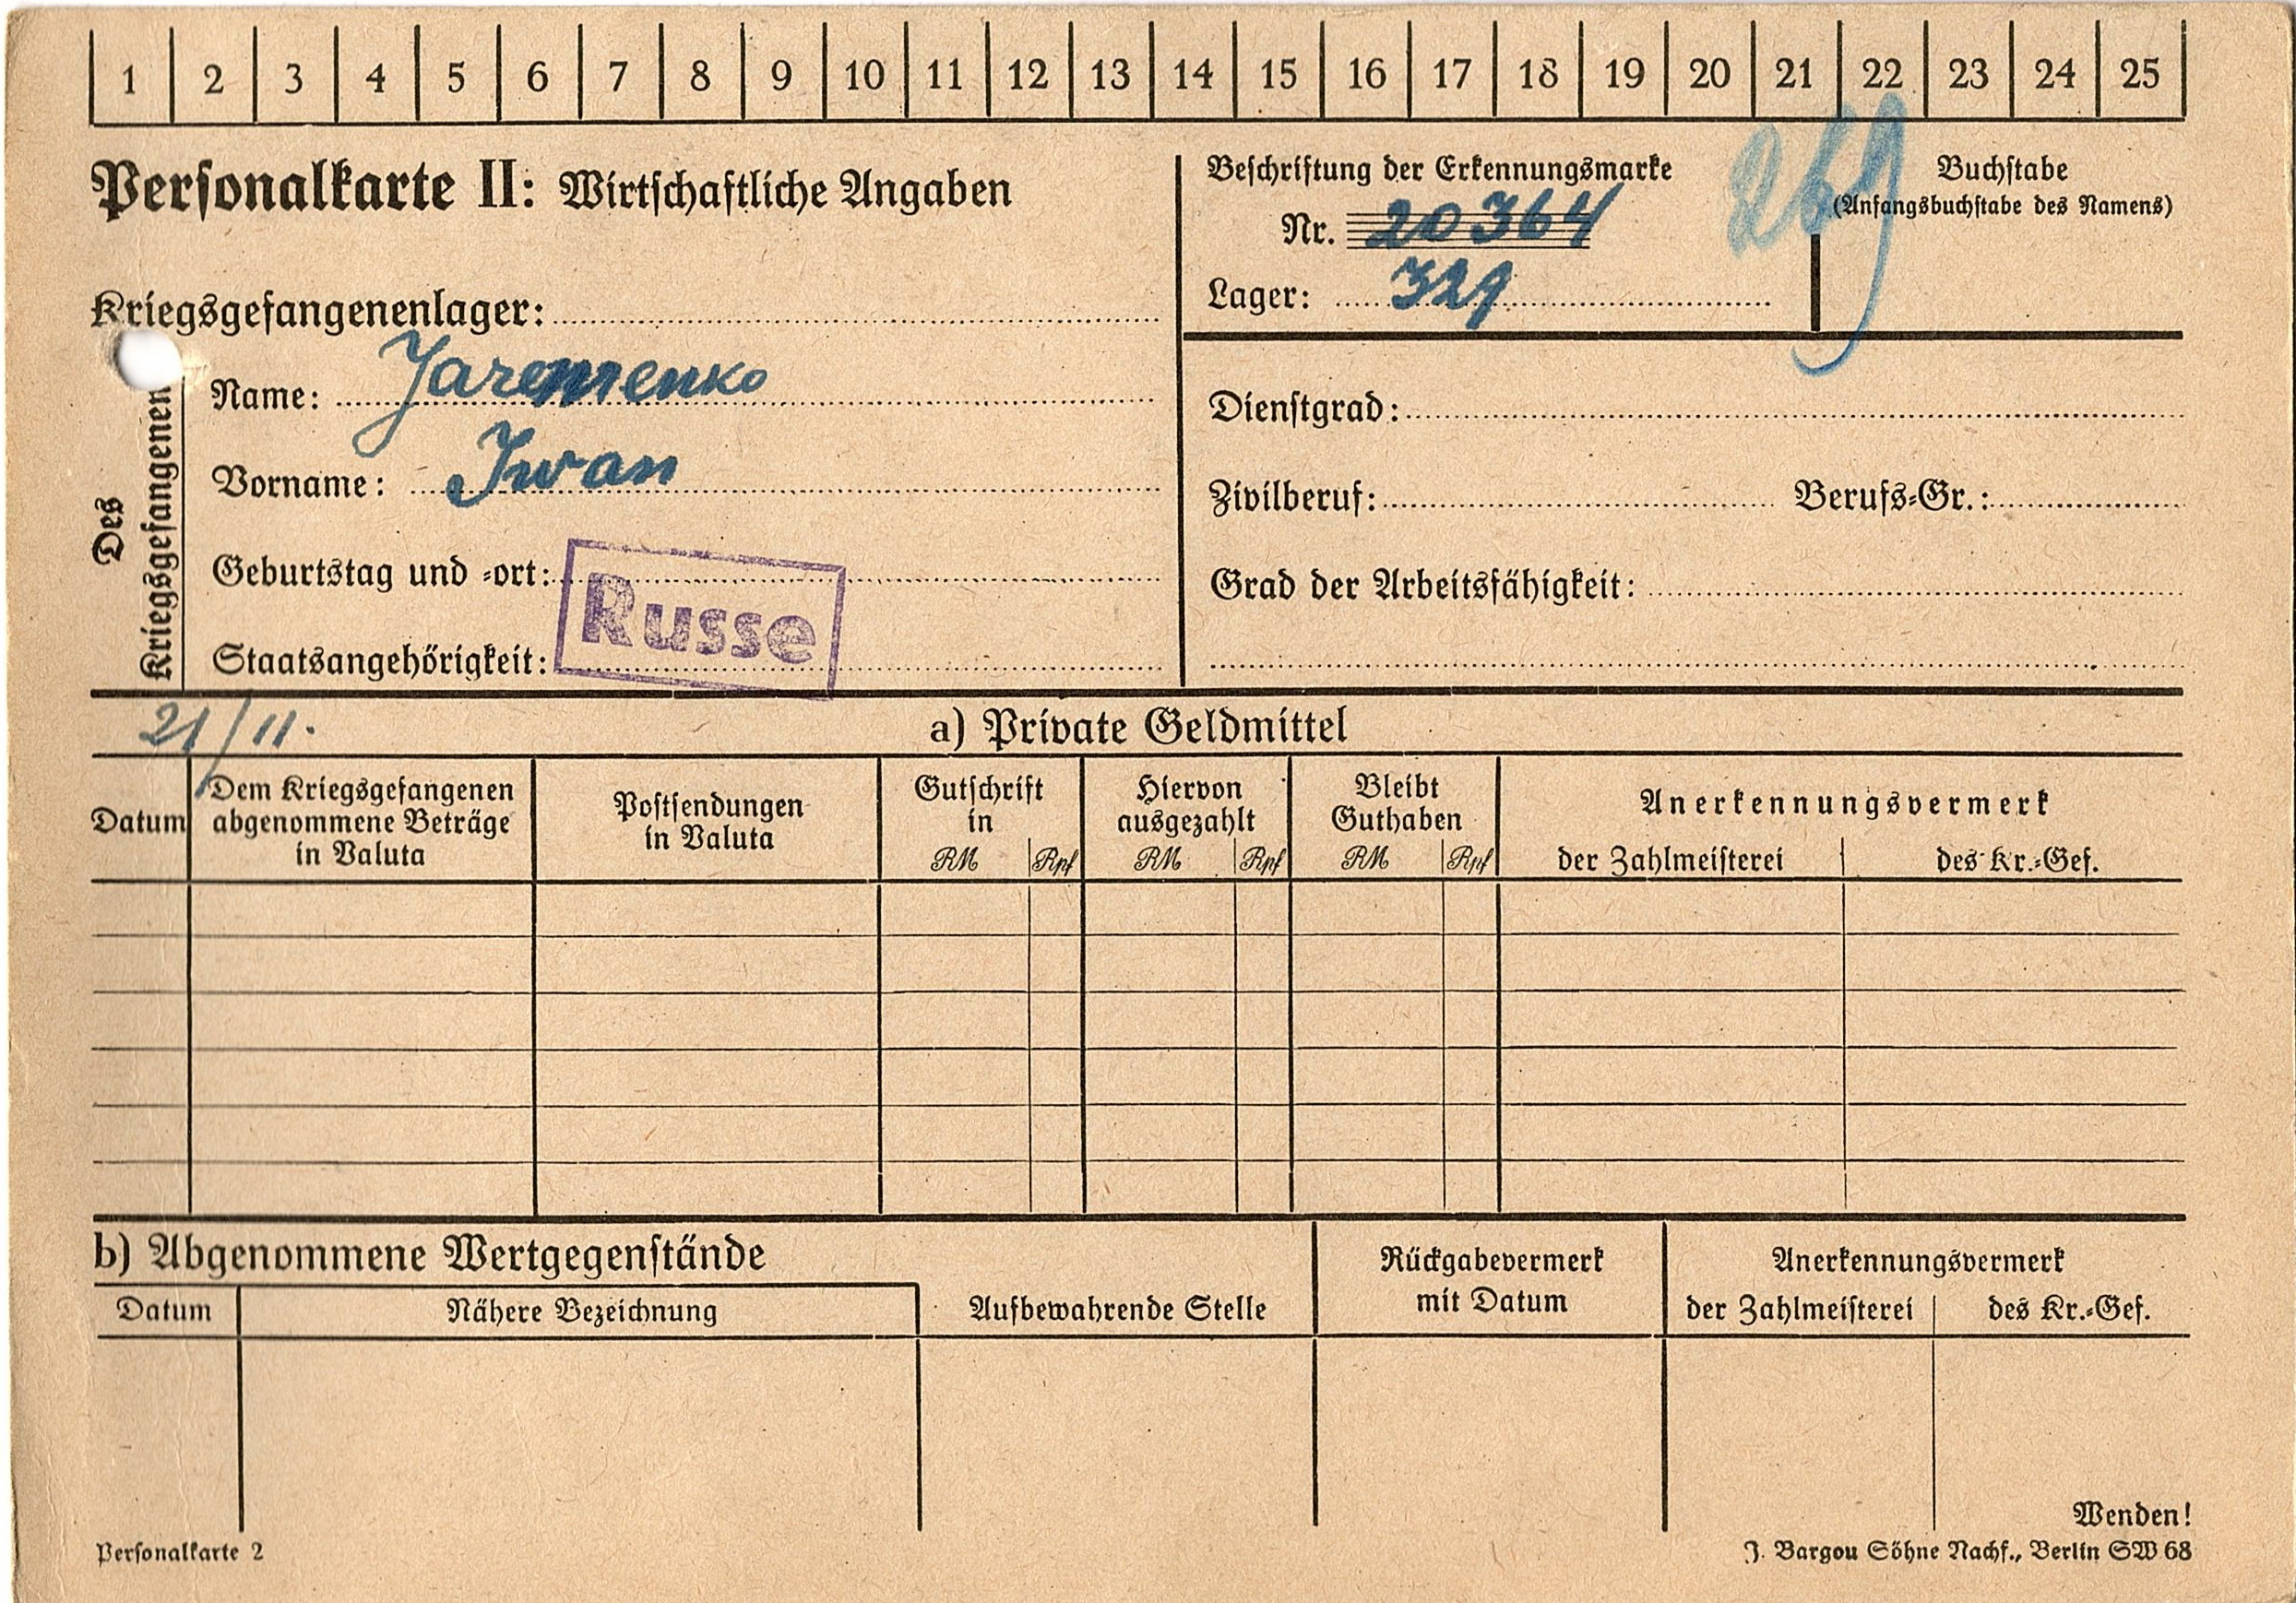 1 2 3 4 5 6 7 8 9 10 11 12 13 14 15 16 17 18 19 20 21 22 23 24 25
Personalkarte II: Wirtschaftliche Angaben
Kriegsgefangenenlager:
Des Kriegsgefangenen
Name: Jaremenko
Vorname: Iwan
Geburtstag und -ort:
Staatsangehörigkeit:
Russe
Beschriftung der Erkennungsmarke
Nr. 20364
Lager: 321
269
Buchstabe
(Anfangsbuchstabe des Namens)
Dienstgrad:
Zivilberuf: Berufs-Gr.:
Grad der Arbeitsfähigkeit:
21/11.
a) Private Geldmittel
Datum
Dem Kriegsgefangenen
abgenommene Beträge
in Valuta
Postsendungen
in Valuta
Gutschrift
in
RM Rpf
Hiervon
ausgezahlt
RM Rpf
Bleibt
Guthaben
RM Rpf
Anerkennungsvermerk
der Zahlmeisterei des Kr.-Gef.
b) Abgenommene Wertgegenstände
Datum Nähere Bezeichnung
Aufbewahrende Stelle
Rückgabevermerk
mit Datum
Anerkennungsvermerk
der Zahlmeisterei des Kr.-Gef.
Wenden!
Personalkarte 2
J. Bargou Söhne Nachf., Berlin SW 68